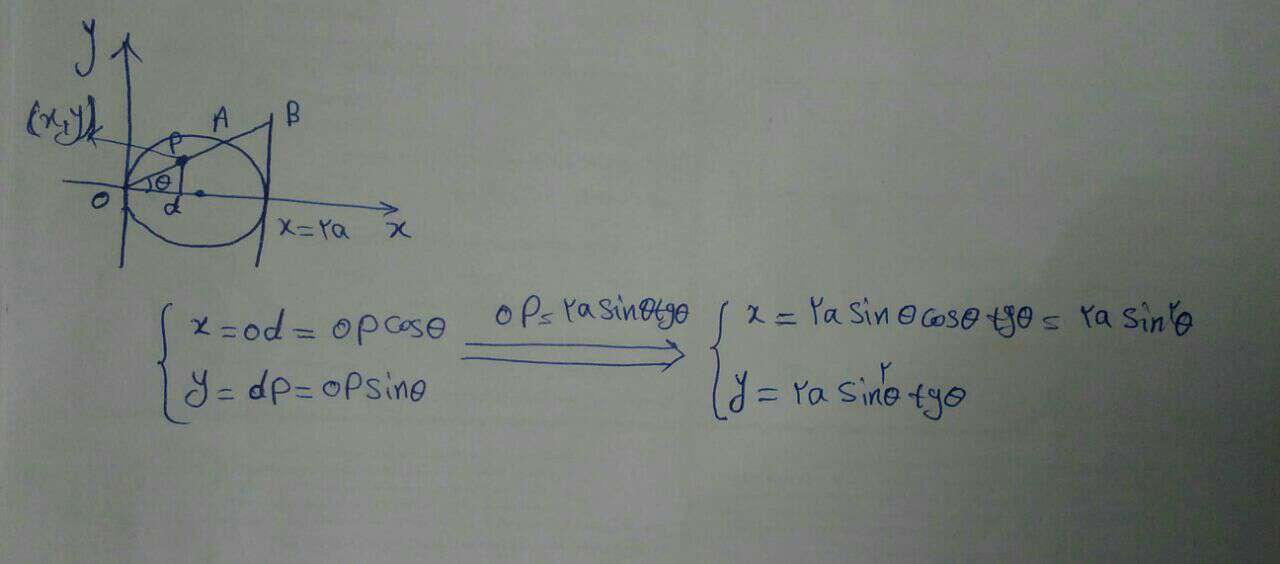 y
(x,y)
P A B
θ
O d
x=۲a x
x=od=opcosθ
y=dp=opsinθ
op=۲asinθtgθ
x=۲asinθcosθtgθ=۲asin²θ
y=۲asin²θtgθ